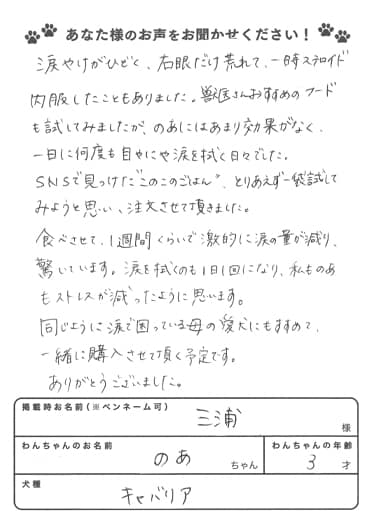 あなた様のお声をお聞かせください！
涙やけがひどく、右眼だけ荒れて、一時ステロイド
内服したこともありました。獣医さんおすすめのフード
も試してみましたが、のあにはあまり効果がなく、
一日に何度も目やにや涙を拭く日々でした。
SNSで見つけた"このこのごはん"、とりあえず一袋試して
みようと思い、注文させて頂きました。
食べさせて、1週間くらいで激的に涙の量が減り、
驚いています。涙を拭くのも1日1回になり、私ものあ
もストレスが減ったように思います。
同じように涙で困っている母の愛犬にもすすめて、
一緒に購入させて頂く予定です。
ありがとうございました。
掲載時お名前（※ペンネーム可）
三浦 様
わんちゃんのお名前 わんちゃんの年齢
のあ ちゃん 3 才
犬種
キャバリア